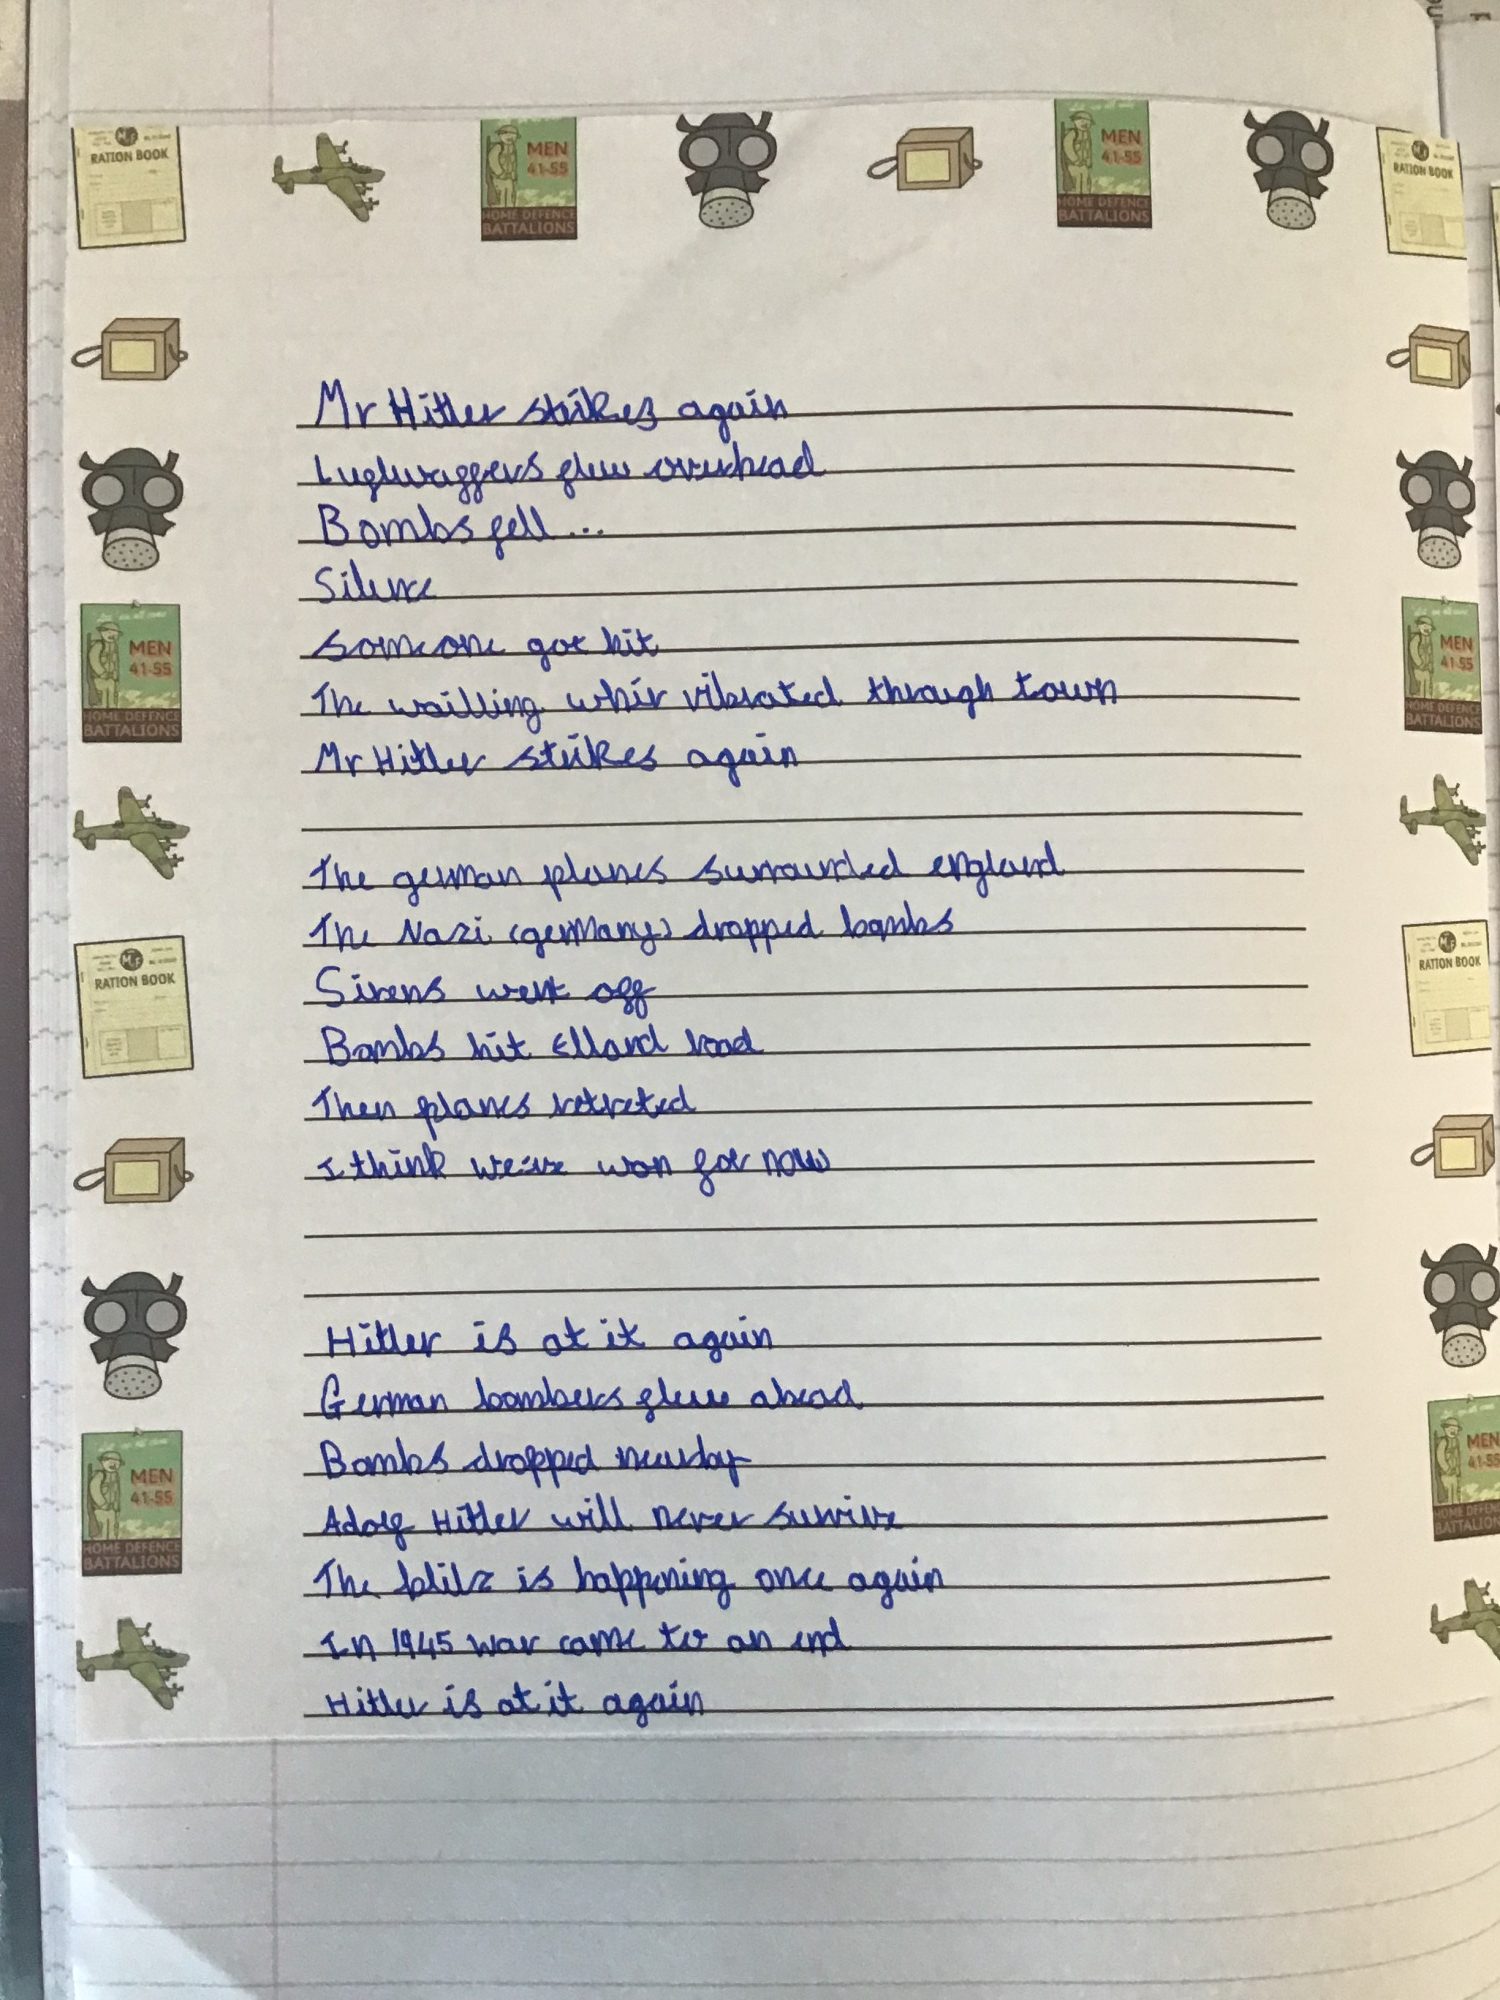 RATION BOOK
MEN
41-55
HOME DEFENCE
BATTALIONS
MEN
41-55
HOME DEFENCE
BATTALIONS
RATION BOOK
Mr Hitler strikes again
Lugwaggers flew overhead
Bombs fell...
Silence
MEN
41-55
HOME DEFENCE
BATTALIONS
MEN
41-55
HOME DEFENCE
BATTALIONS
someone got hit
The wailling whir vibrated through town
Mr Hitler strikes again
The german planes surrounded england
The Nazi (germany) dropped bombs
RATION BOOK
RATION BOOK
Sirens went off
Bombs hit Ellard road
Then planes retreted
I think we've won for now
Hitler is at it again
German bombers flew ahead
Bombs dropped nearby
MEN
41-55
HOME DEFENCE
BATTALIONS
MEN
41-55
HOME DEFEN
BATTALIONS
Adolf Hitler will never survive
The blitz is happening once again
In 1945 war came to an end
Hitler is at it again